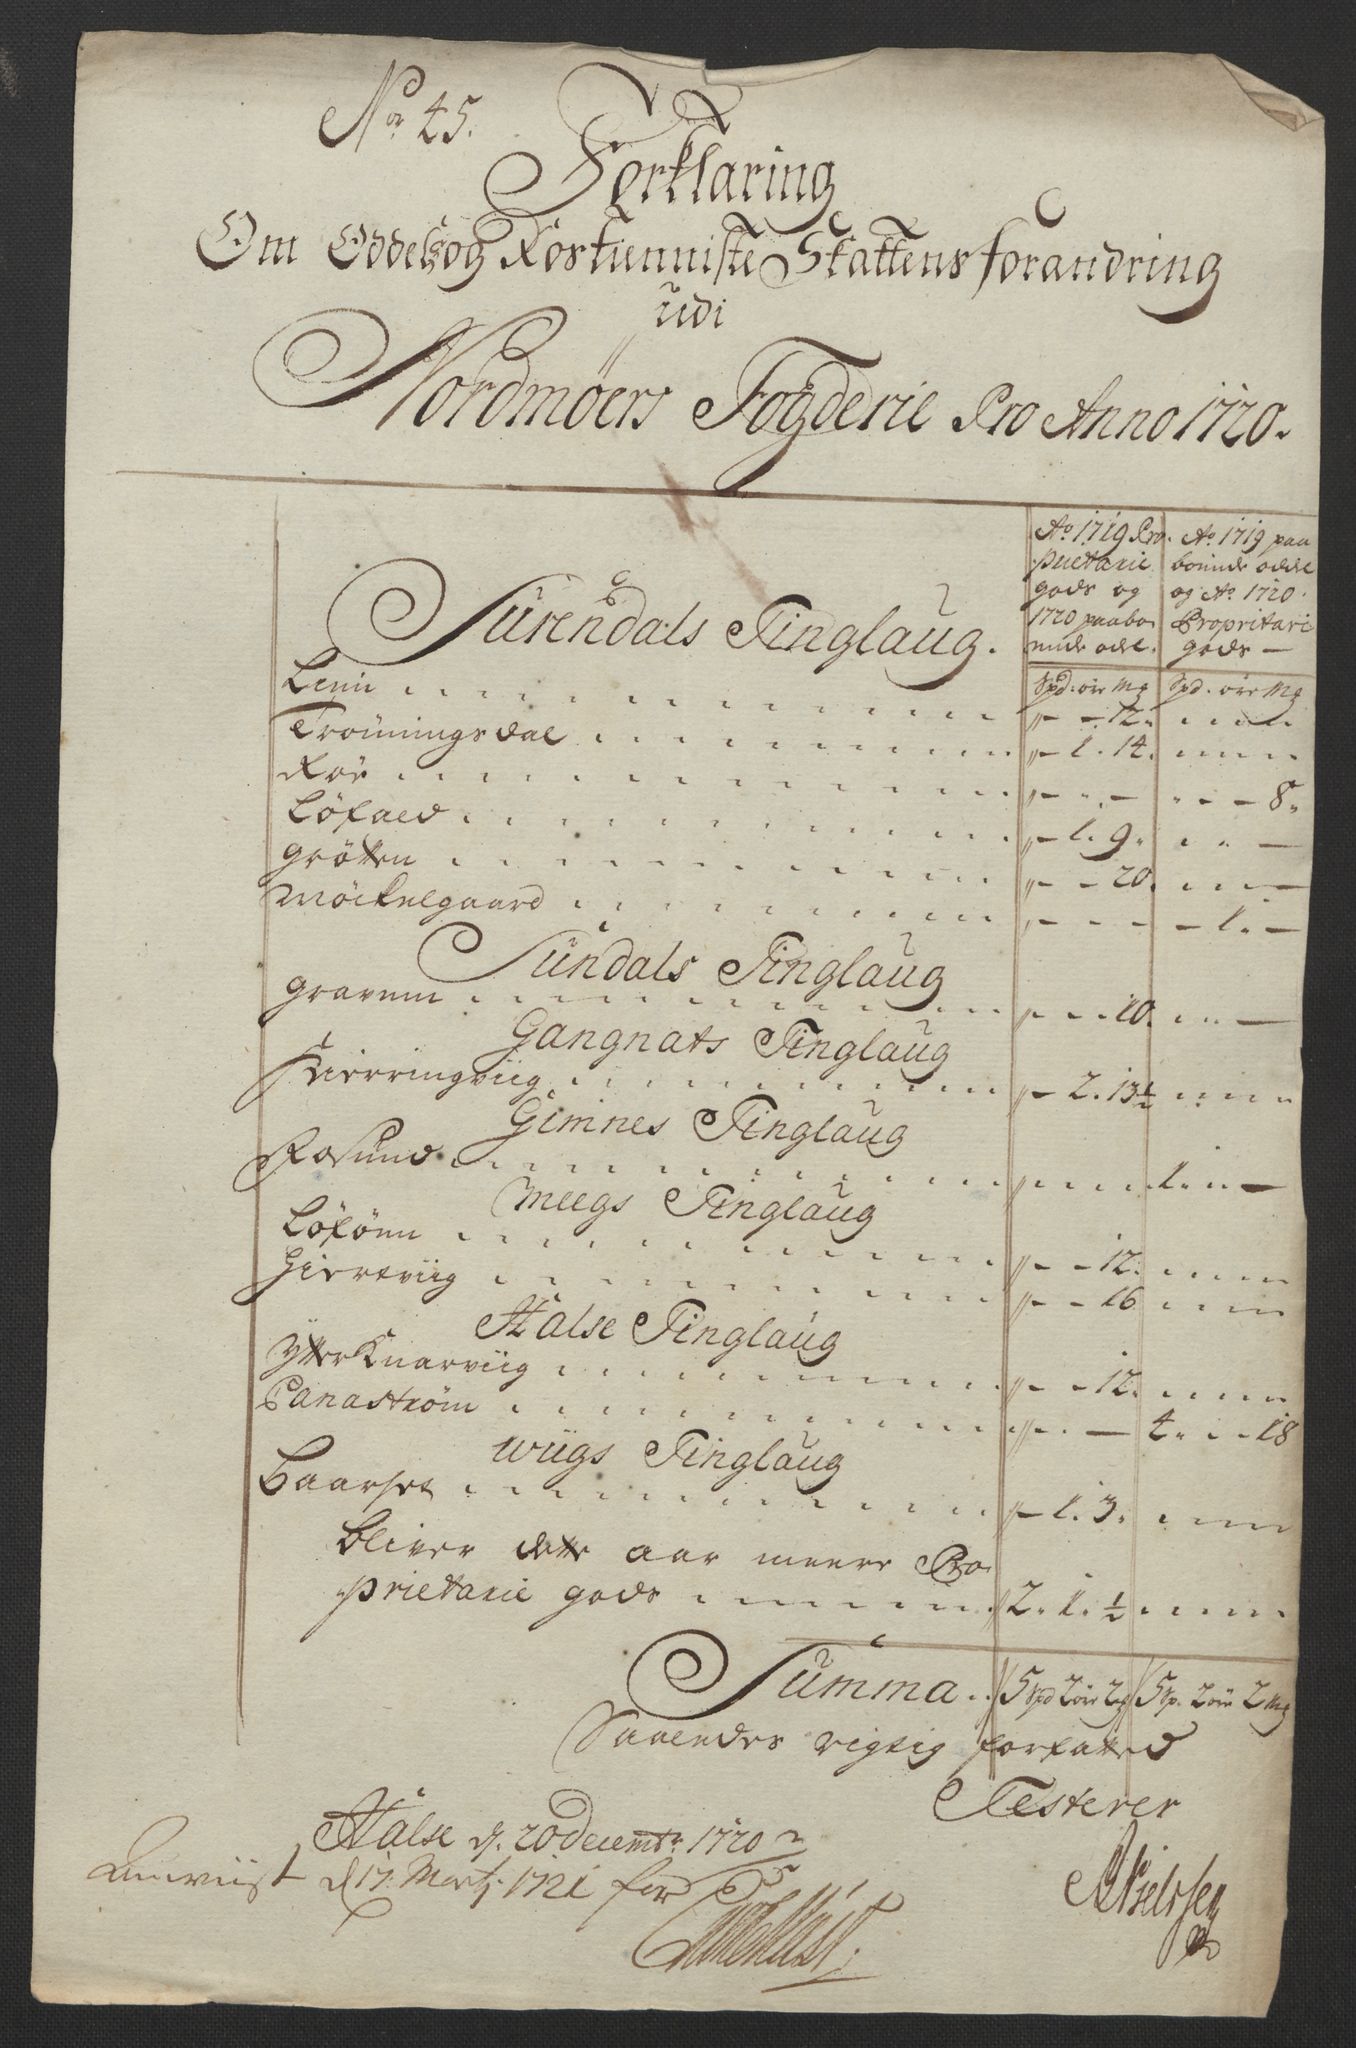 No 45.
Forklaring
Om Oddels og Rostienniste Skattens forandring
udi
Nordmøers Fogderie Pro Anno 1720.
Ao 1719 Pro
prietarie
gods og
1720 paaboe
nde odel.
Ao 1719 paa
boende odel
og Ao 1720
Propritari
gods —
Surendals Tinglaug.
Spd. öre mg Spd. öre mg
Lenn . . . „ - - 12. . . .
Tronningsdal . . . „ - 1. 14. . . .
Roe . . . „ - - - - - 8.
Löfald . . . „ - 1. 9. . . —
Grötten . . . „ - - 20. . . —
Möckelgaard . . . „ - - - - 1. —
Sundals Tinglaug
Gravem . . . „ - - 10. . . —
Gangnats Tinglaug
Kierringviig . . . „ - 2. 13½ . . .
Gimnes Tinglaug
Rosund . . . „ - - - 1. - —
Meegs Tinglaug
Löfönn . . . „ - - 12. . . .
Giertviig . . . „ - - 16 . . .
Halse Tinglaug
Ytter Knarviig . . . „ - - 12. . . .
Panaström . . . „ - — 4. - - 18
Wiigs Tinglaug
Baarset . . . „ - 1. 3. . . .
Bliver dette aar meere Pro
prietarie gods . . . 2. 1. ½ . . .
Summa . . 5 Spd 2 öre 2 mg 5 Sp. 2 öre 2 mg
Saaledes rigtig forfatted
Testerer
Halse d. 20 Decembr 1720
d 17 Marty 1721 for